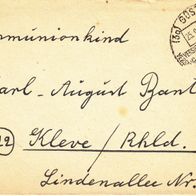 mmunionkind
arl-August Bant
Kleve / Rhld.
Lindenallee Nr.